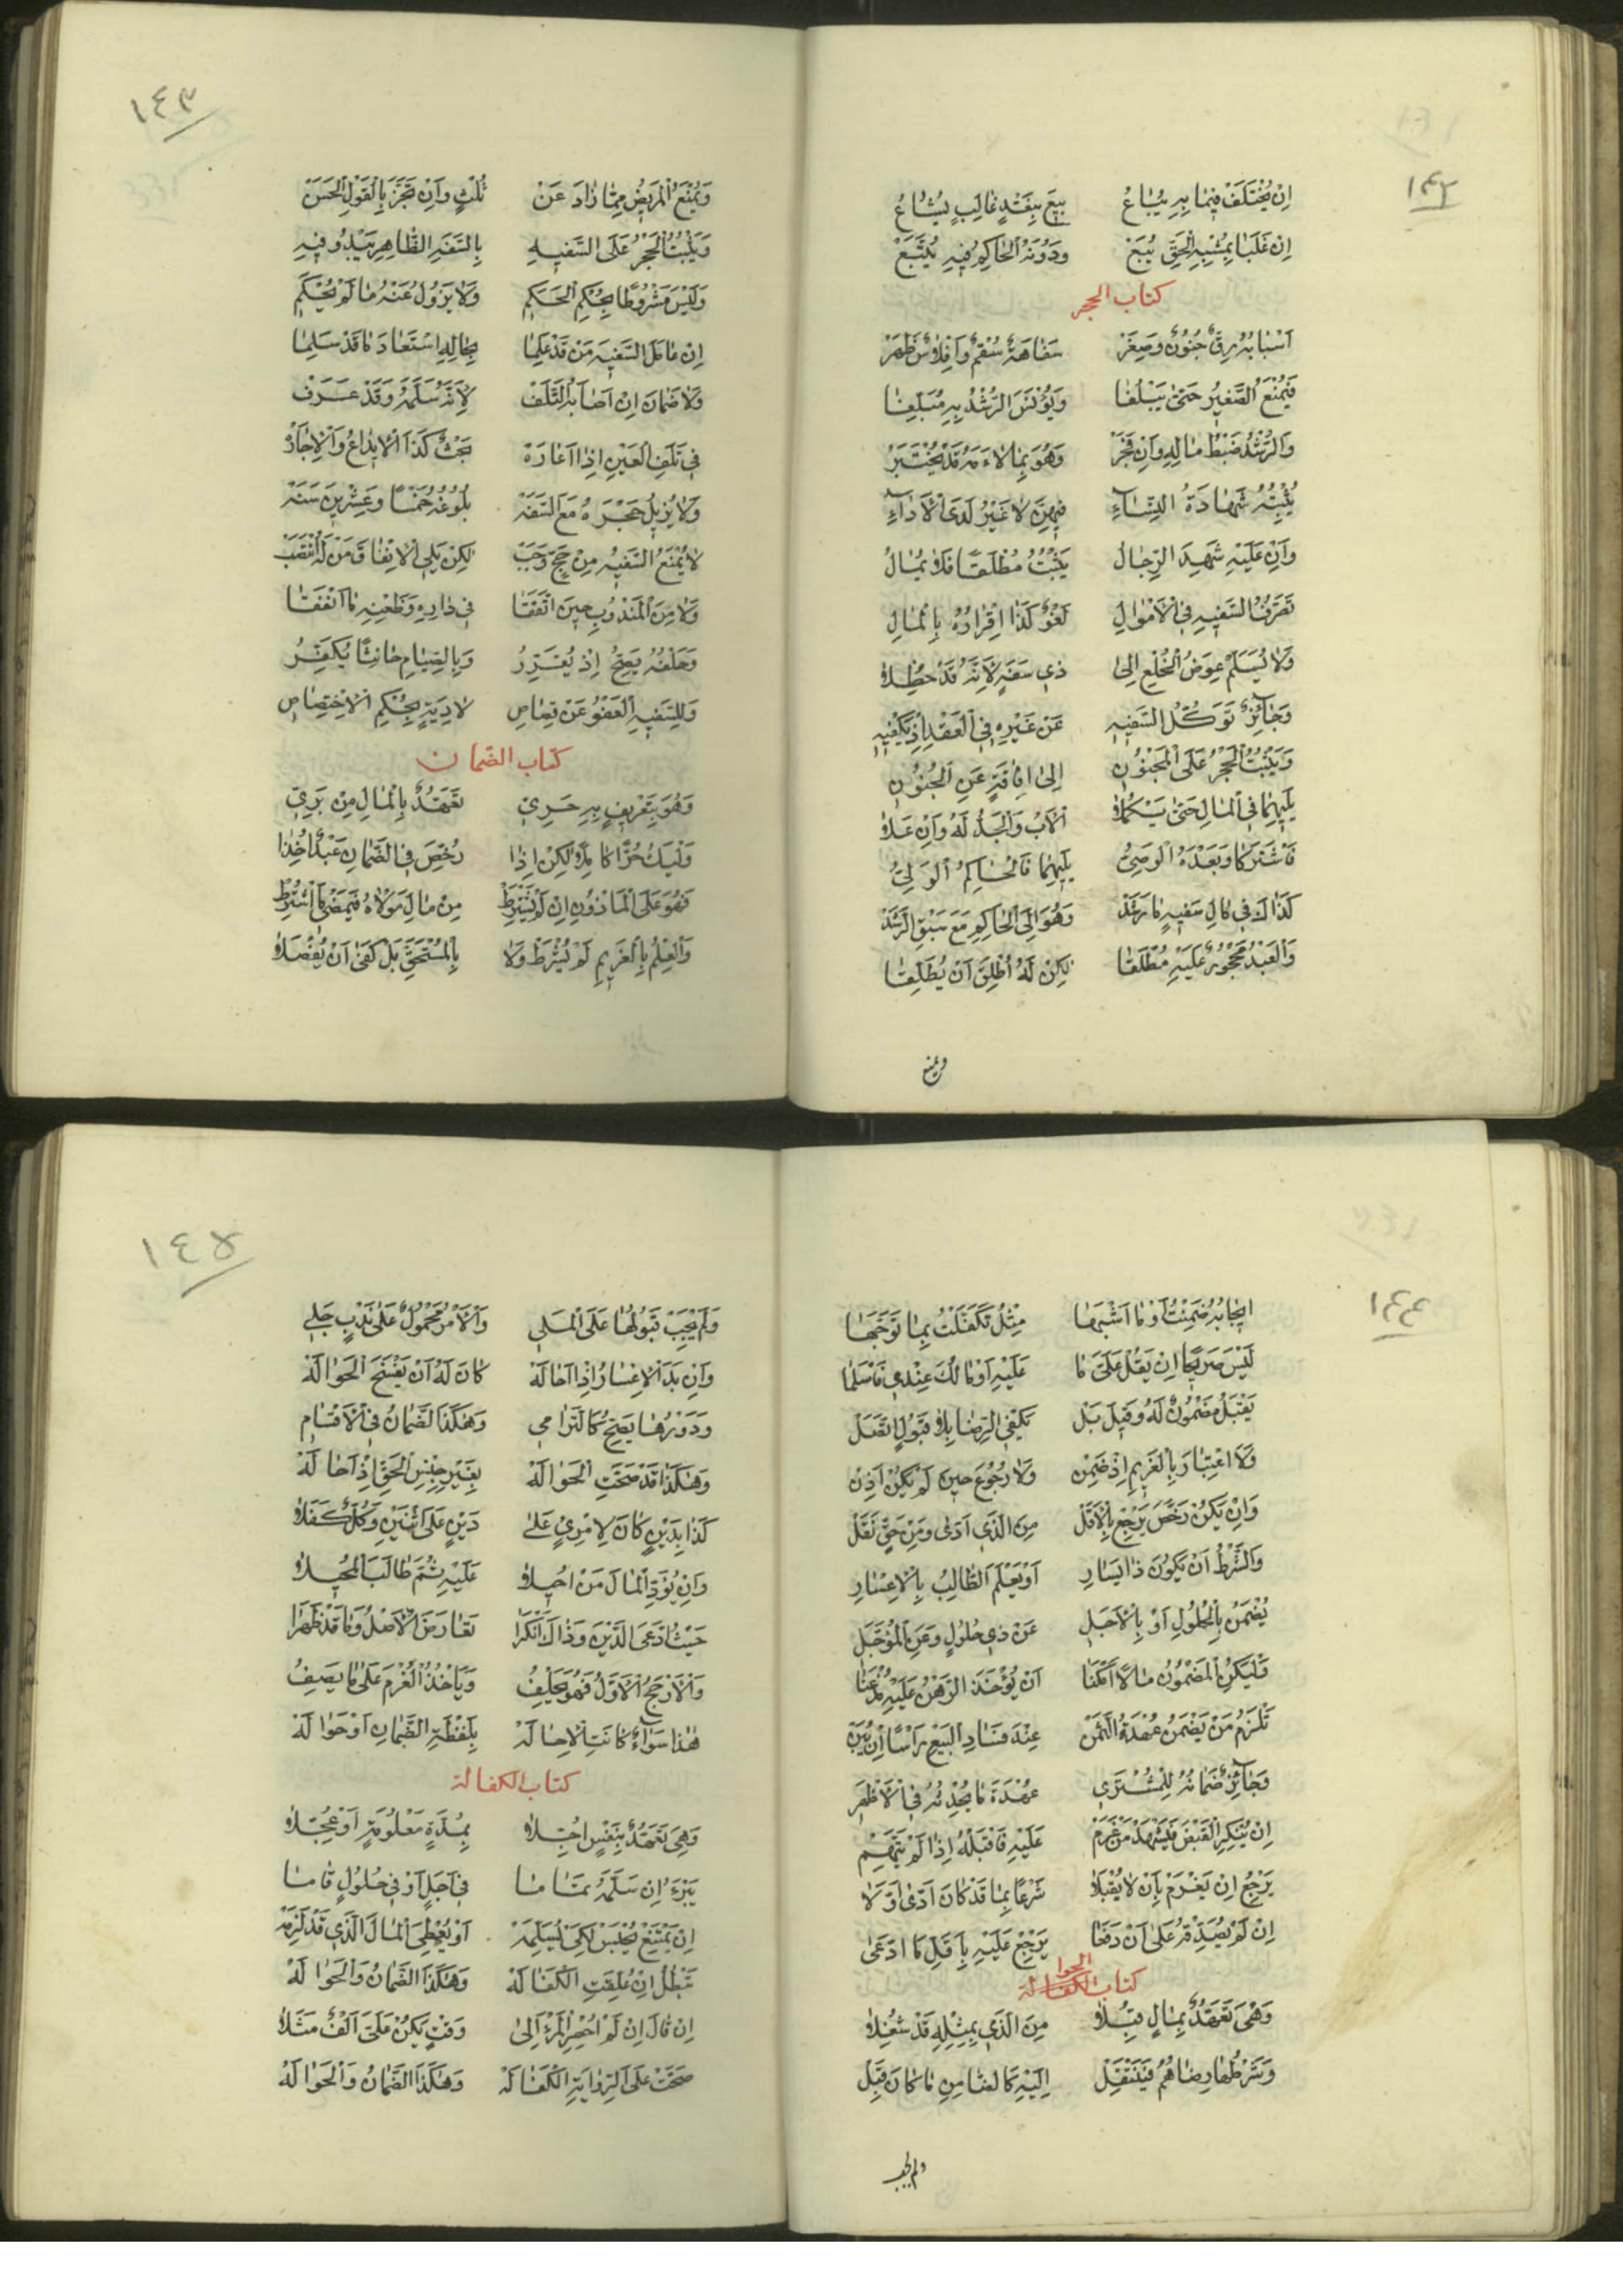 ١٤٢
اِنْ يُخْتَلَفْ فِيمَا بِهِ يُبَاعُ بِيعَ بِنَقْدٍ غَالِبٍ يُشَاعُ
اِنْ غَلَبَا بِمُشْبِهِ الْحَقِّ يُبَعْ وَدُونَهُ الْحَاكِمُ فِيهِ يُتَّبَعْ
كتاب الحجر
اَسْبَابُهُ رِقٌّ جُنُونٌ وَصِغَرْ سَفَاهَةٌ سُقْمٌ وَاِفْلَاسٌ ظَهَرْ
فَيُمْنَعُ الصَّغِيرُ حَتّٰى يَبْلُغَا وَيُؤْنَسَ الرُّشْدُ بِهِ مُبَلِّغَا
وَالرُّشْدُ ضَبْطُ مَالِهِ وَاِنْ فَجَرْ وَهُوَ بِمَا لَاءَمَهُ قَدْ يُخْتَبَرْ
يُثْبِتُهُ شَهَادَةُ النِّسَاءِ فِيهِنَّ لَا غَيْرُ لَدَى الْاَدَاءِ
وَاِنْ عَلَيْهِ شَهِدَ الرِّجَالُ يَثْبُتُ مُطْلَقًا فَلَا يُمَالُ
تَصَرُّفُ السَّفِيهِ فِي الْاَمْوَالِ لَغْوٌ كَذَا اِقْرَارُهُ بِالْمَالِ
وَلَا يُسَلَّمْ عِوَضُ الْخُلْعِ اِلٰى ذِي سَفَهٍ لِاَنَّهُ قَدْ حُظِلَا
وَجَائِزٌ تَوَكُّلُ السَّفِيهِ عَنْ غَيْرِهِ فِي الْعَقْدِ اِذْ يَكْفِيهِ
وَيَثْبُتُ الْحَجْرُ عَلَى الْمَجْنُونِ اِلٰى اِفَاقَةٍ عَنِ الْجُنُونِ
يَلِيهِمَا فِي الْمَالِ حَتّٰى يَكْمُلَا الْاَبُ وَالْجَدُّ لَهُ وَاِنْ عَلَا
فَاشْتَرَكَا وَبَعْدَهُ الْوَصِيُّ يَلِيهِمَا فَالْحَاكِمُ الْوَلِيُّ
كَذَاكَ فِي مَالِ سَفِيهٍ مَا رَشَدْ وَهُوَ اِلَى الْحَاكِمِ مَعَ سَبْقِ الرَّشَدْ
وَالْعَبْدُ مَحْجُورٌ عَلَيْهِ مُطْلَقَا لٰكِنْ لَهُ اُطْلِقَ اَنْ يُطَلِّقَا
ويمنع
١٤٣
وَيُمْنَعُ الْمَرِيضُ مِمَّا زَادَ عَنْ ثُلْثٍ وَاِنْ نَجَّزَ بِالْقَوْلِ الْحَسَنْ
وَيَثْبُتُ الْحَجْرُ عَلَى السَّفِيهِ بِالسَّفَهِ الظَّاهِرِ يَبْدُو فِيهِ
وَلَيْسَ مَشْرُوطًا بِحُكْمِ الْحَكَمِ وَلَا يَزُولُ عَنْهُ مَا لَمْ يُحْكَمِ
اِنْ عَامَلَ السَّفِيهَ مَنْ قَدْ عَلِمَا بِحَالِهِ اسْتَعَادَ مَا قَدْ سَلِمَا
وَلَا ضَمَانَ اِنْ اَصَابَهُ التَّلَفْ لِاَنَّهُ سَلَّمَهُ وَقَدْ عَرَفْ
فِي تَلَفِ الْعَيْنِ اِذَا اَعَارَهْ بَحْثٌ كَذَا الْاِيدَاعُ وَالْاِجَارَهْ
وَلَا يُزِيلُ حَجْرَهُ مَعَ السَّفَهْ بُلُوغُهُ خَمْسًا وَعِشْرِينَ سَنَهْ
لَا يُمْنَعُ السَّفِيهُ مِنْ حَجٍّ وَجَبْ لٰكِنْ يَلِي الْاِنْفَاقَ مَنْ لَهُ انْتَصَبْ
وَلَا مِنَ الْمَنْدُوبِ حِينَ اتَّفَقَا فِي دَارِهِ وَظَعْنِهِ مَا اَنْفَقَا
وَحَلْفُهُ يَصِحُّ اِذْ يُعْتَبَرُ وَبِالصِّيَامِ حَانِثًا يُكَفِّرُ
وَلِلسَّفِيهِ الْعَفْوُ عَنْ قِصَاصِ لَا دِيَةٍ بِحُكْمِ الْاِخْتِصَاصِ
كتاب الضمان
وَهُوَ بِتَعْرِيفٍ بِهِ حَرِيِّ تَعَهُّدٌ بِالْمَالِ مِنْ بَرِيِّ
وَلْيَكُ حُرًّا كَامِلًا لٰكِنْ اِذَا رُخِّصَ فِي الضَّمَانِ عَبْدٌ اُخِذَا
فَهُوَ عَلَى الْمَأْذُونِ اِنْ لَمْ يُشْتَرَطْ مِنْ مَالِ مَوْلَاهُ فَيَمْضِي مَا اشْتُرِطْ
وَالْعِلْمُ بِالْغَرِيمِ لَمْ يُشْرَطْ وَلَا بِالْمُسْتَحِقِّ بَلْ كَفٰى اَنْ يُفْصَلَا
١٤٤
اِيجَابُهُ ضَمِنْتُ اَوْ مَا اَشْبَهَا مِثْلُ تَكَفَّلْتُ بِمَا تَوَجَّهَا
لَيْسَ صَرِيحًا اِنْ يَقُلْ عَلَيَّ مَا عَلَيْهِ اَوْ مَالُكَ عِنْدِي فَاسْلَمَا
يَقْبَلُ مَضْمُونٌ لَهُ وَقِيلَ بَلْ يَكْفِي الرِّضَا بِلَا قَبُولٍ اتَّصَلْ
وَلَا اعْتِبَارَ بِالْغَرِيمِ اِذْ ضَمِنْ وَلَا رُجُوعَ حِينَ لَمْ يَكُنْ اَذِنْ
وَاِنْ يَكُنْ رَخَّصَ يَرْجِعْ بِالْاَقَلّْ مِنَ الَّذِي اَدّٰى وَمِنْ حَقٍّ نَقَلْ
وَالشَّرْطُ اَنْ يَكُونَ ذَا يَسَارِ اَوْ يَعْلَمَ الطَّالِبُ بِالْاِعْسَارِ
يُضْمَنُ بِالْحُلُولِ اَوْ بِالْاَجَلِ عَنْ ذِي حُلُولٍ وَعَنِ الْمُؤَجَّلِ
وَلْيَكُنِ الْمَضْمُونُ مَالًا اَمْكَنَا اَنْ يُؤْخَذَ الرَّهْنُ عَلَيْهِ مُذْعِنَا
تَلْزَمُ مَنْ يَضْمَنُ عُهْدَةُ الثَّمَنْ عِنْدَ فَسَادِ الْبَيْعِ رَأْسًا اِنْ يَبِنْ
وَجَائِزٌ ضَمَانُهُ لِلْمُشْتَرِي عُهْدَةَ مَا يُحْدِثُهُ فِي الْاَظْهَرِ
اِنْ يُنْكِرِ الْقَبْضَ فَيَشْهَدْ مَنْ غَرِمْ عَلَيْهِ فَاقْبَلْهُ اِذَا لَمْ يَتَّهِمْ
يَرْجِعُ اِنْ يَغْرَمْ بِاَنْ لَا يُقْبَلَا شَرْعًا بِمَا قَدْ كَانَ اَدّٰى اَوَّلَا
اِنْ لَمْ يُصَدِّقْهُ عَلٰى اَنْ دَفَعَا يَرْجِعْ عَلَيْهِ بِاَقَلِّ مَا ادَّعٰى
كتاب الحوالة
وَهْيَ تَعَهُّدٌ بِمَالٍ قُبِلَا مِنَ الَّذِي بِمِثْلِهِ قَدْ شُغِلَا
وَشَرْطُهَا رِضَاهُمُ فَيَنْتَقِلْ اِلَيْهِ كَالضَّامِنِ مَا كَانَ قَبِلْ
ولم يجب
١٤٥
وَلَمْ يَجِبْ قَبُولُهَا عَلَى الْمَلِي وَالْاَمْرُ مَحْمُولٌ عَلٰى نَدْبٍ جَلِي
وَاِنْ بَدَا الْاِعْسَارُ اِذَا اَحَالَهْ كَانَ لَهُ اَنْ يَفْسَخَ الْحَوَالَهْ
وَدَوْرُهَا يَصِحُّ كَالتَّرَامِي وَهٰكَذَا الضَّمَانُ فِي الْاَقْسَامِ
وَهٰكَذَا قَدْ صَحَّتِ الْحَوَالَهْ بِغَيْرِ جِنْسِ الْحَقِّ اِذْ اَحَالَهْ
كَذَا بِدَيْنٍ كَانَ لِامْرِئٍ عَلٰى دَيْنٍ عَلَى اثْنَيْنِ وَكُلٌّ كَفَلَا
وَاِنْ يُؤَدِّ الْمَالَ مَنْ اُحِيلَا عَلَيْهِ ثُمَّ طَالَبَ الْمُحِيلَا
حَيْثُ ادَّعَى الدَّيْنَ وَذَاكَ اَنْكَرَا تَعَارَضَ الْاَصْلُ وَمَا قَدْ ظَهَرَا
وَالْاَرْجَحُ الْاَوَّلُ فَهُوَ يَحْلِفُ وَيَأْخُذُ الْغُرْمَ عَلٰى مَا يَصِفُ
هٰذَا سَوَاءٌ كَانَتِ الْاِحَالَهْ بِلَفْظَةِ الضَّمَانِ اَوْ حَوَالَهْ
كتاب الكفالة
وَهِيَ تَعَهُّدٌ بِنَفْسٍ اُجِّلَا بِمُدَّةٍ مَعْلُومَةٍ اَوْ عُجِّلَا
يَبْرَءُ اِنْ سَلَّمَهُ تَمَامَا فِي اَجَلٍ اَوْ فِي حُلُولٍ قَامَا
اِنْ يَمْتَنِعْ يُحْبَسْ لِكَيْ يُسَلِّمَهْ اَوْ يُعْطِيَ الْمَالَ الَّذِي قَدْ لَزِمَهْ
تَبْطُلُ اِنْ عُلِّقَتِ الْكَفَالَهْ وَهٰكَذَا الضَّمَانُ وَالْحَوَالَهْ
اِنْ قَالَ اِنْ لَمْ اُحْضِرِ الْمَرْءَ اِلٰى وَقْتٍ يَكُنْ عَلَيَّ اَلْفٌ مَثَلَا
صَحَّتْ عَلَى الرِّوَايَةِ الْكَفَالَهْ وَهٰكَذَا الضَّمَانُ وَالْحَوَالَهْ